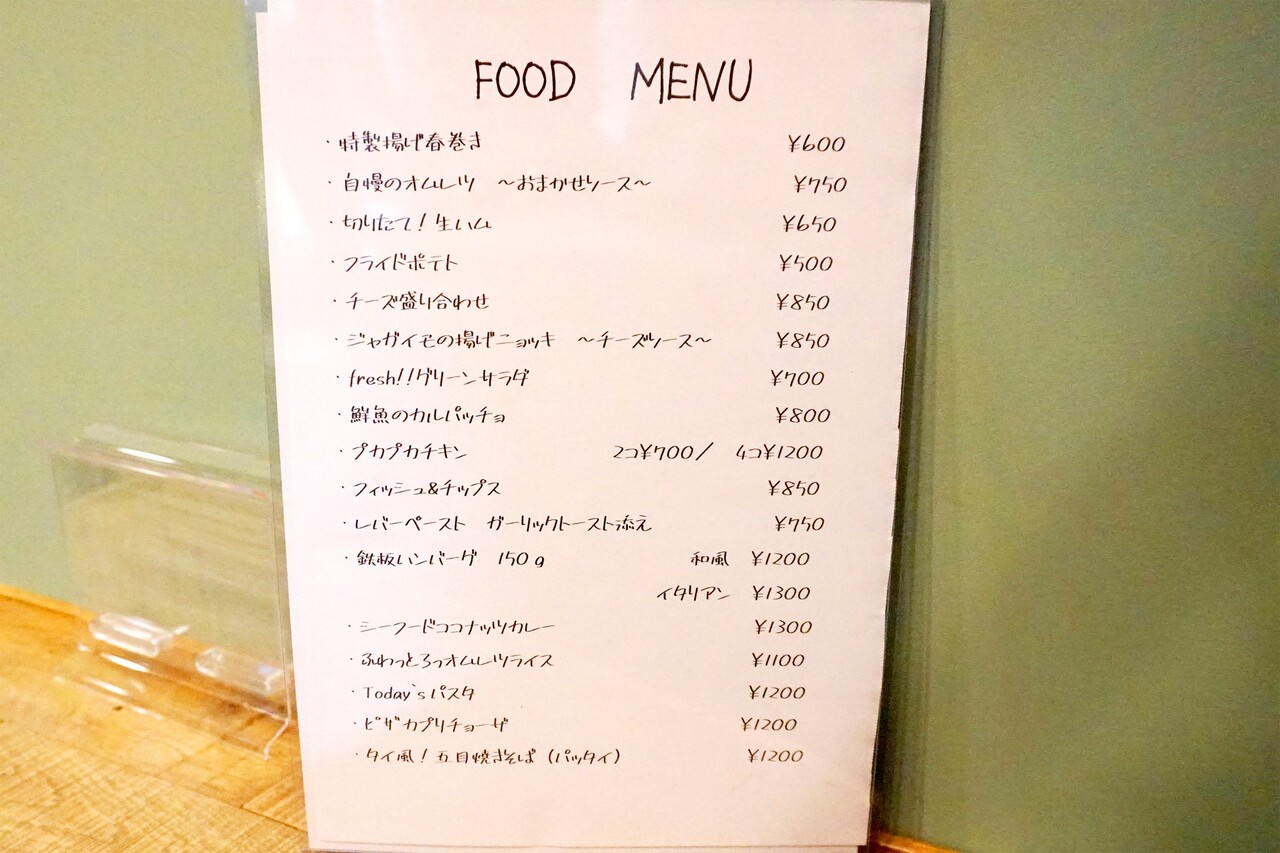 FOOD MENU
・特製揚げ春巻き ¥600
・自慢のオムレツ ～おまかせソース～ ¥750
・切りたて！生ハム ¥650
・フライドポテト ¥500
・チーズ盛り合わせ ¥850
・ジャガイモの揚げニョッキ ～チーズソース～ ¥850
・fresh!!グリーンサラダ ¥700
・鮮魚のカルパッチョ ¥800
・プカプカチキン 2コ¥700／ 4コ¥1200
・フィッシュ&チップス ¥850
・レバーペースト ガーリックトースト添え ¥750
・鉄板ハンバーグ 150g 和風 ¥1200
イタリアン ¥1300
・シーフードココナッツカレー ¥1300
・ふわっとろっオムレツライス ¥1100
・Today`sパスタ ¥1200
・ピザカプリチョーザ ¥1200
・タイ風！五目焼きそば（パッタイ） ¥1200